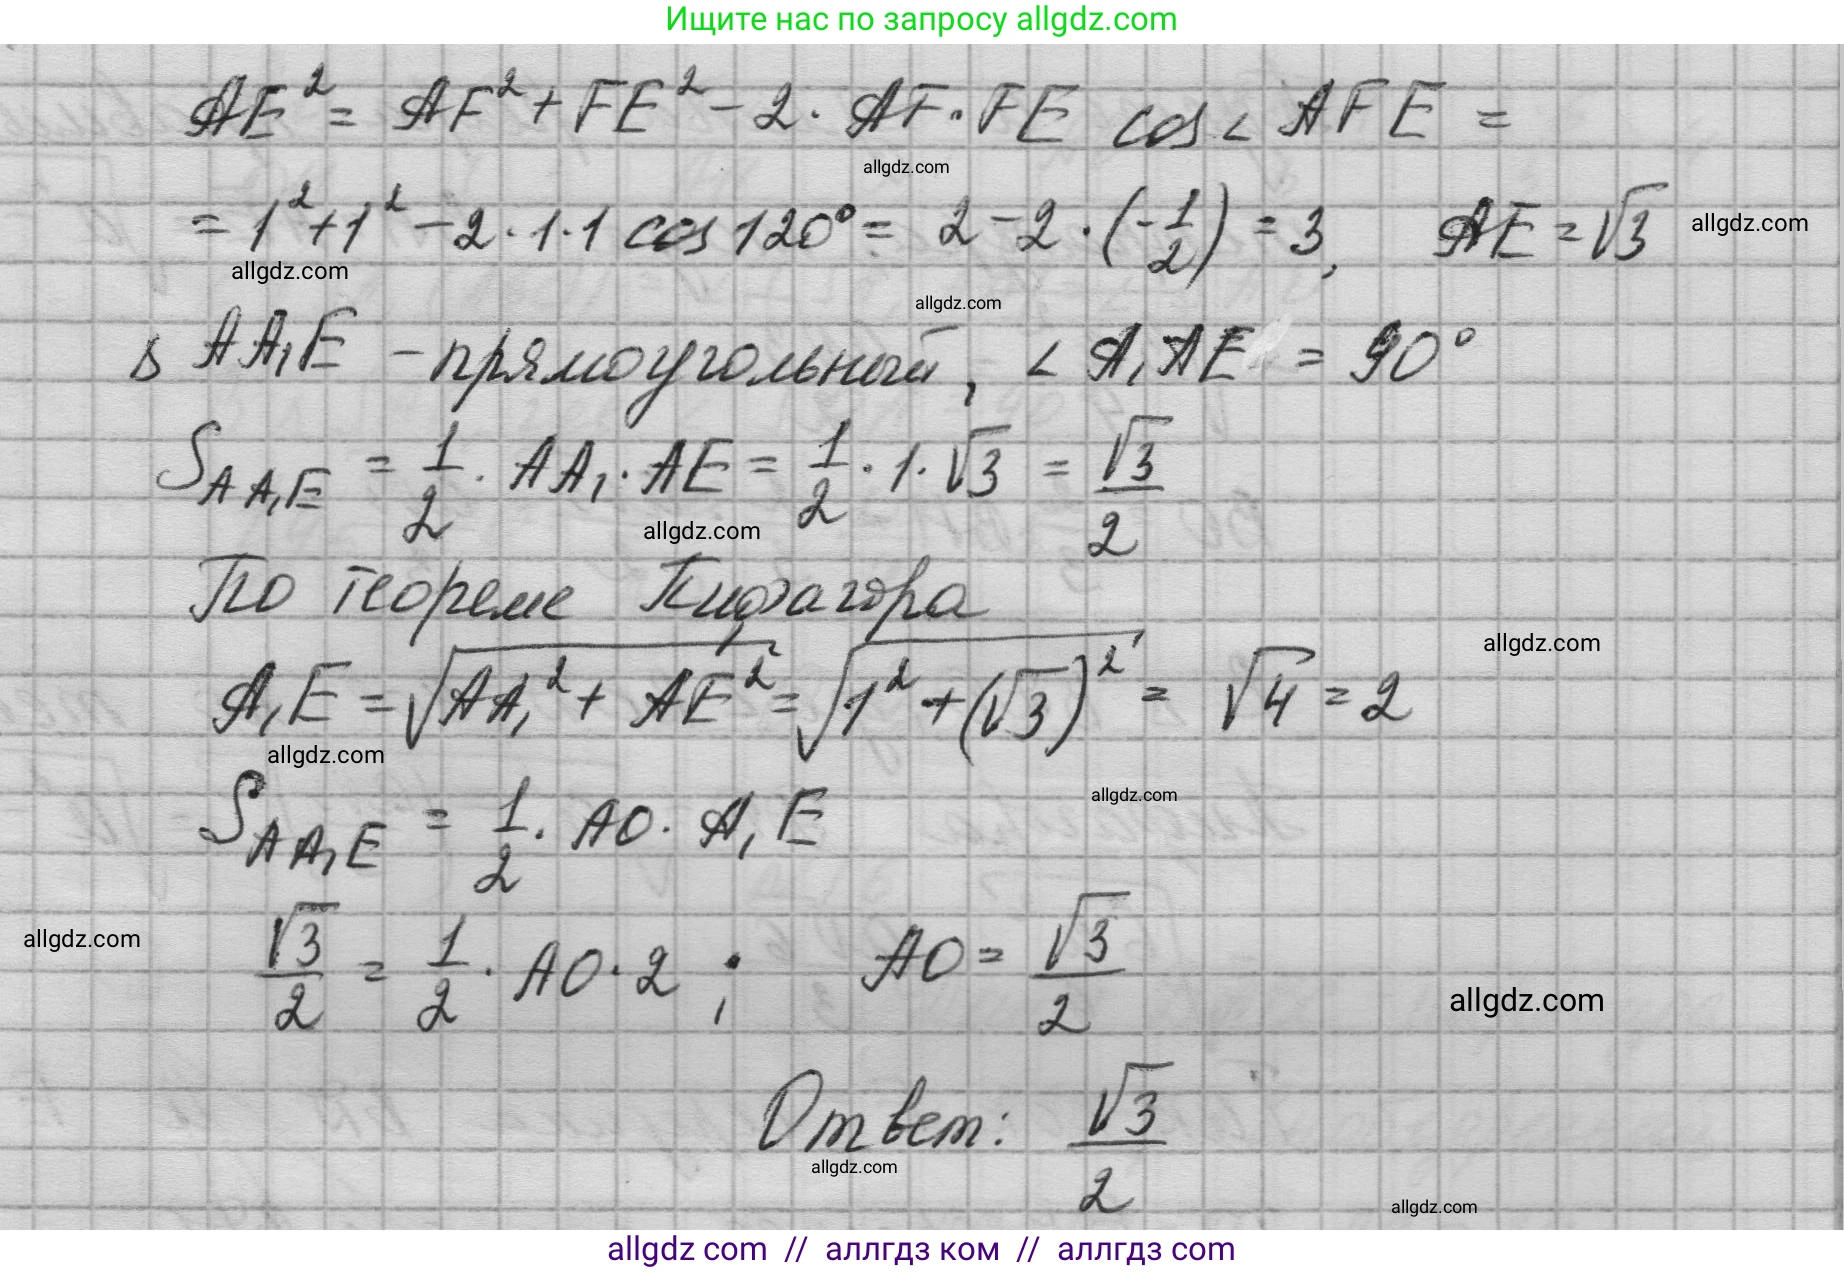 Ищите нас по запросу allgdz.com
AE² = AF² + FE² - 2 · AF · FE cos ∠ AFE =
allgdz.com
= 1² + 1² - 2 · 1 · 1 cos 120° = 2 - 2 · (-1/2) = 3, AE = √3 allgdz.com
allgdz.com
allgdz.com
Δ AA₁E - прямоугольный, ∠ A₁AE = 90°
S AA₁E = 1/2 · AA₁ · AE = 1/2 · 1 · √3 = √3/2
allgdz.com
По теореме Пифагора
allgdz.com
A₁E = √(AA₁² + AE²) = √(1² + (√3)²) = √4 = 2
allgdz.com
allgdz.com
S AA₁E = 1/2 · AO · A₁E
allgdz.com
√3/2 = 1/2 · AO · 2 ; AO = √3/2
allgdz.com
Ответ: √3/2
allgdz.com
allgdz.com
allgdz com // аллгдз ком // аллгдз com